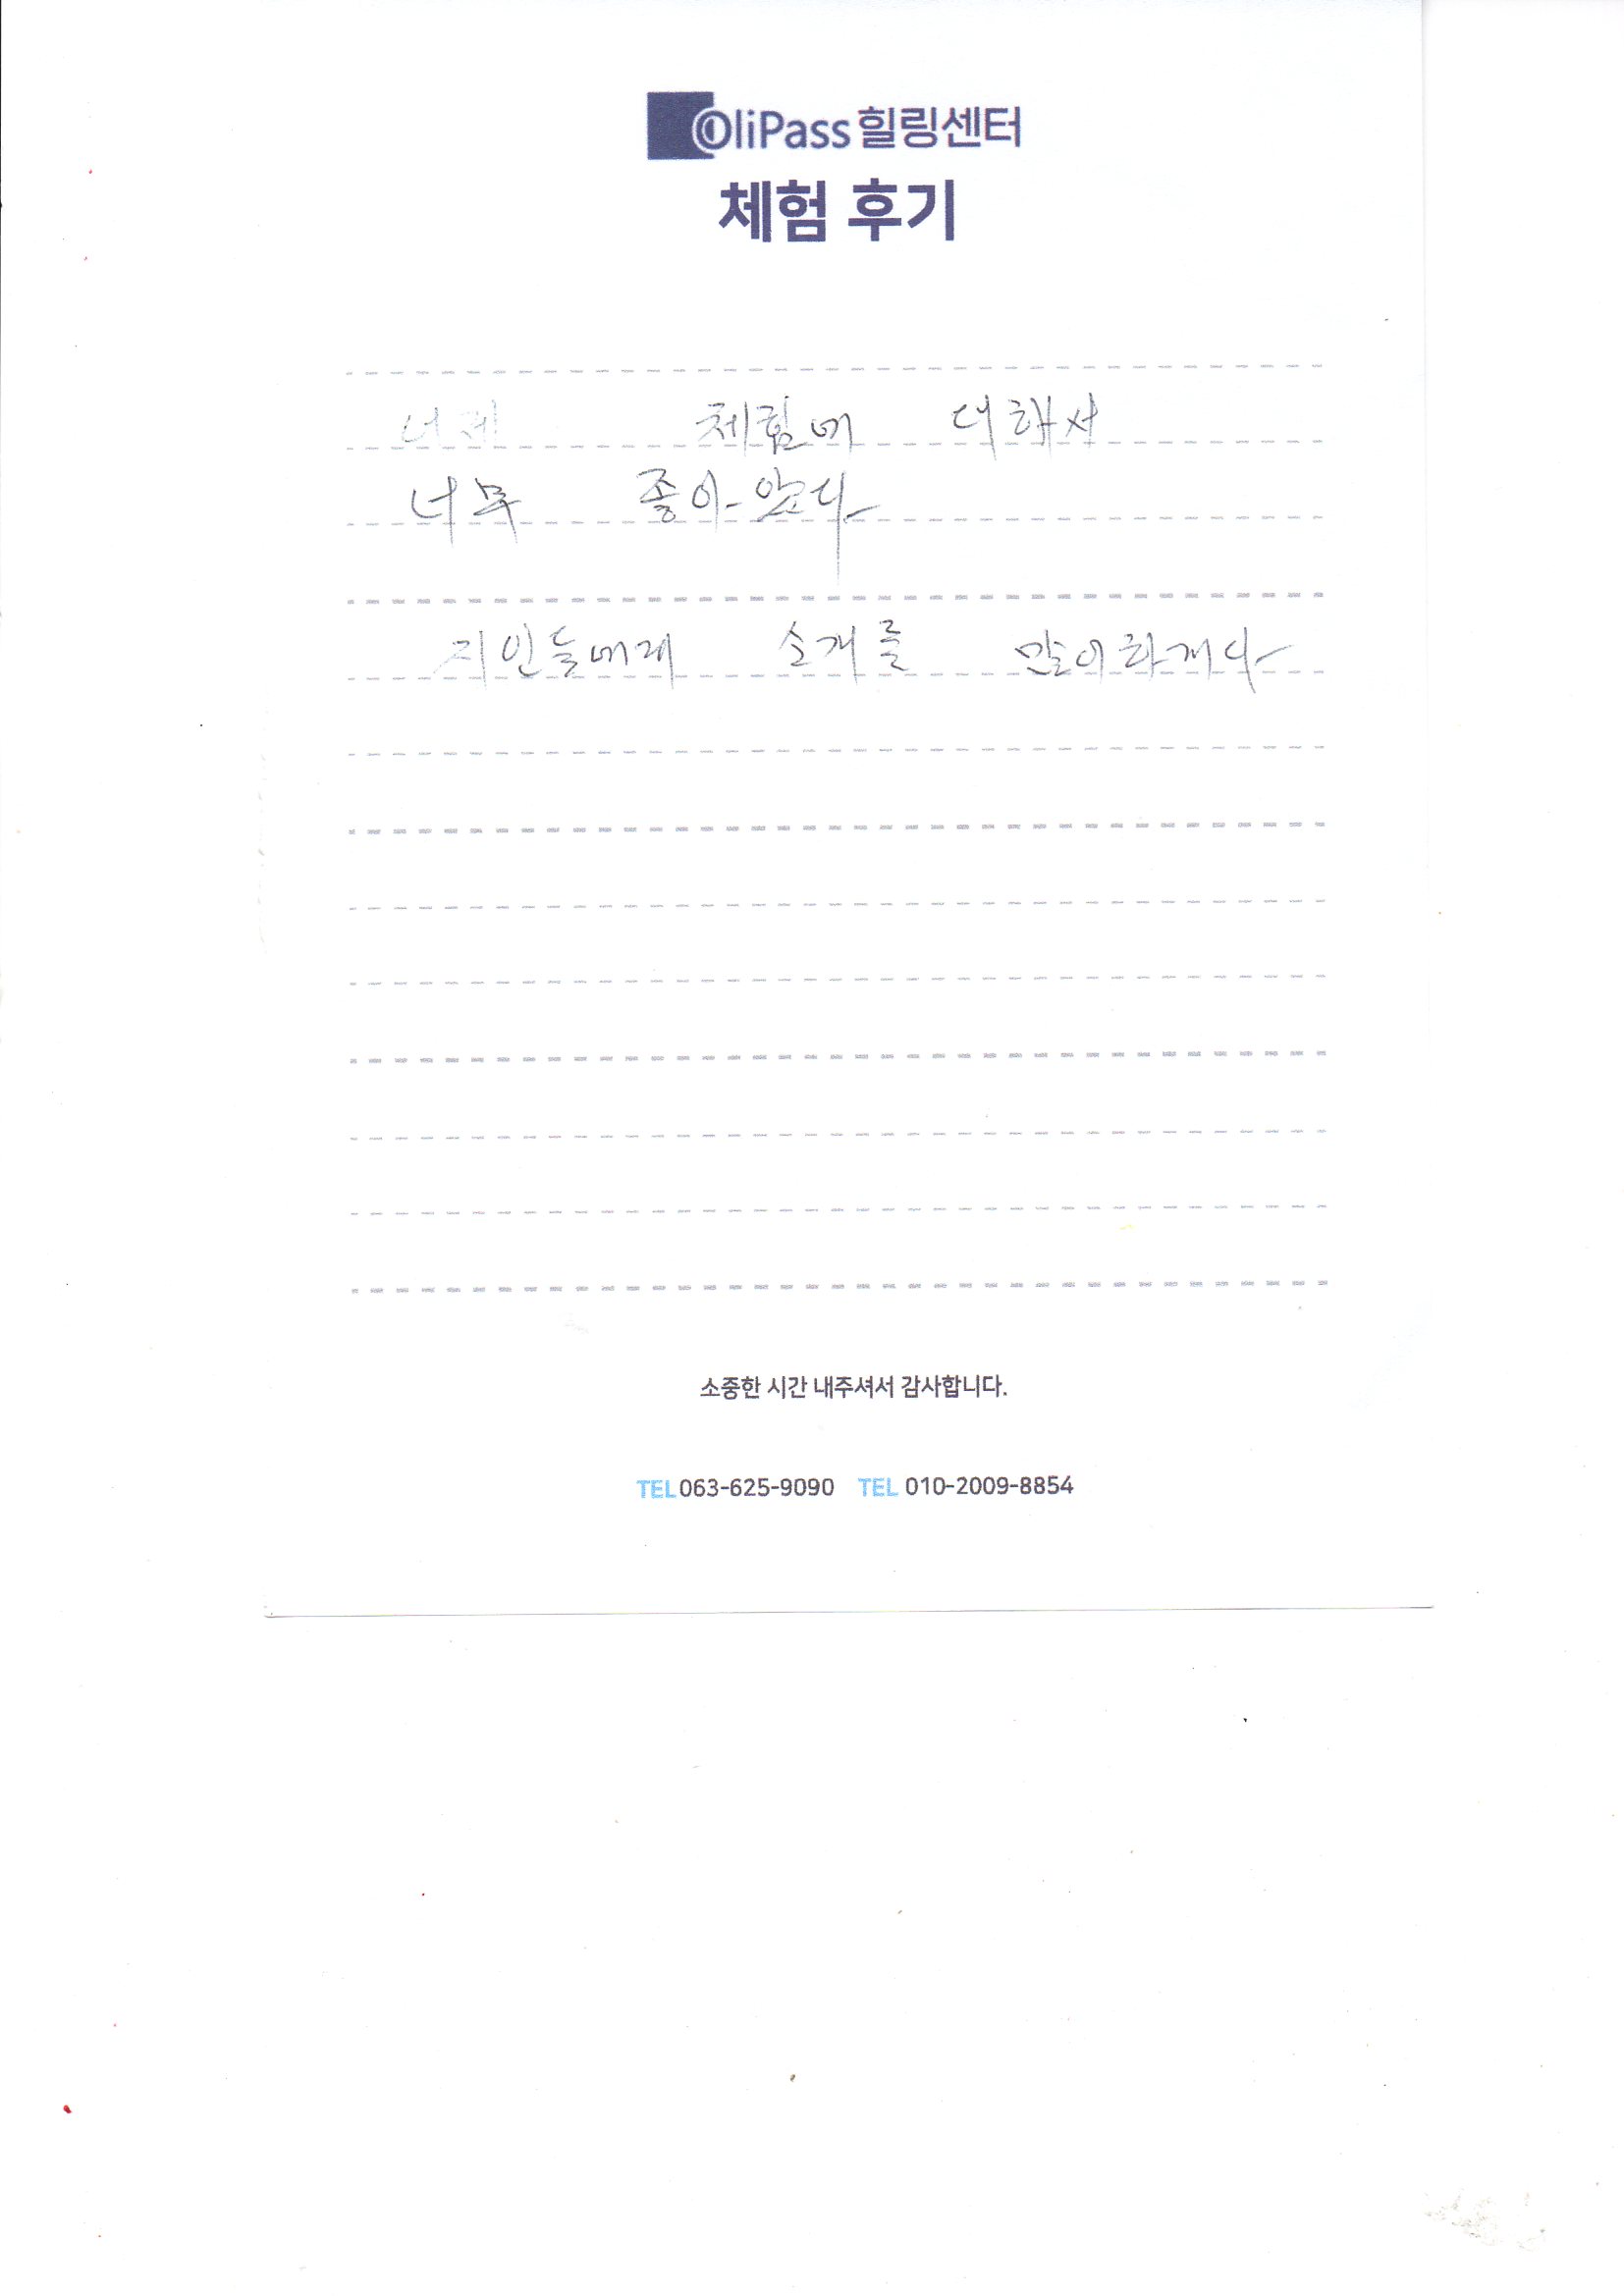 OliPass 힐링센터
체험 후기
체험에 대해서
너무 좋아았다
지인들에게 소개를 많이하게다
소중한 시간 내주셔서 감사합니다.
TEL 063-625-9090 TEL 010-2009-8854